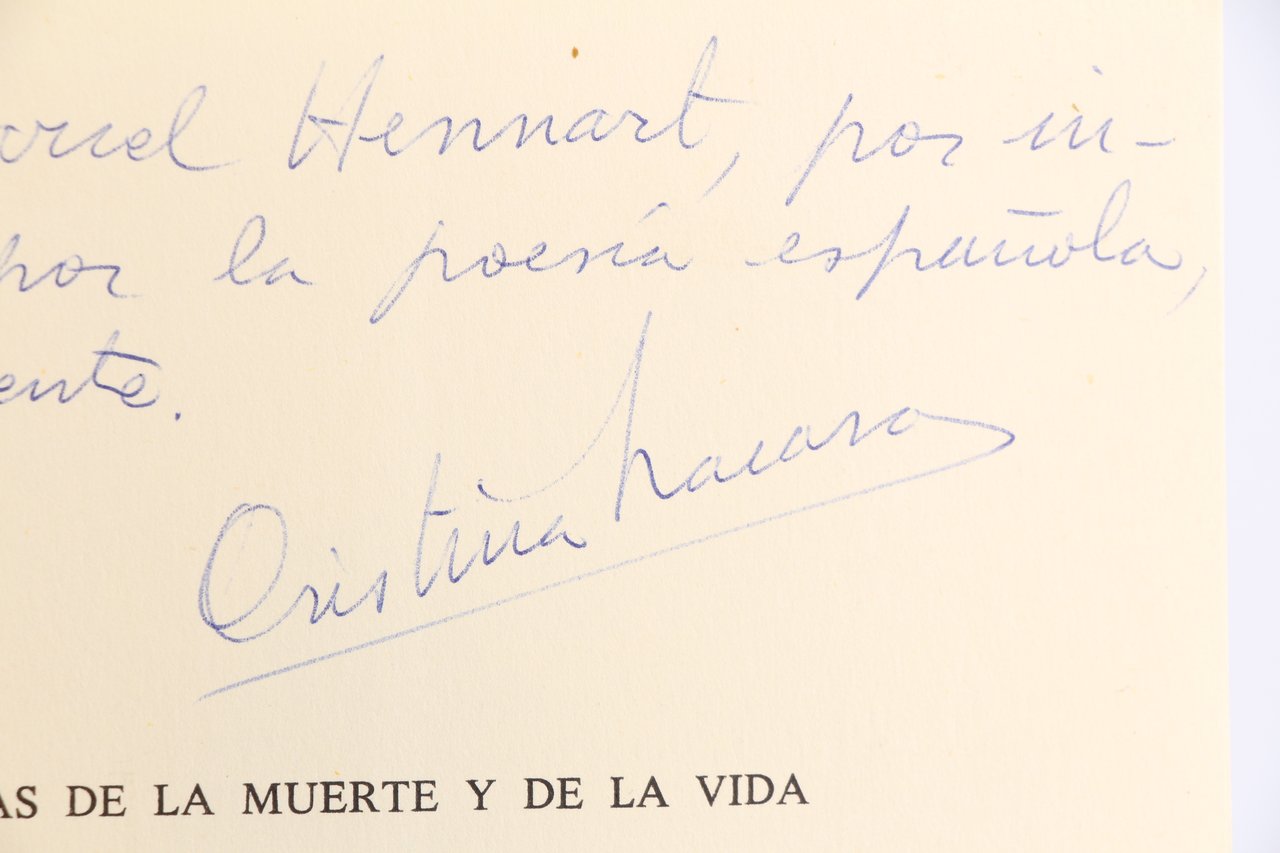 arcel Hennart, por in-
por la poesía española,
ente.
Cristina Lacasa
AS DE LA MUERTE Y DE LA VIDA